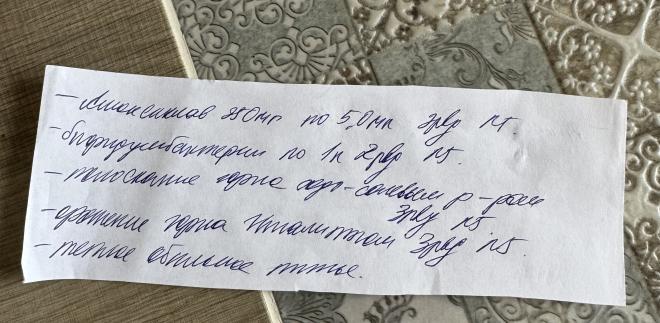 - Амоксиклав 250мг по 5,0мл 3р/д №5.
- бифидумбактерин по 1п 2р/д №5.
- полоскание горла содо-солевым р-ром
3р/д №5
- орошение горла Ингалиптом 3р/д №5.
- теплое обильное питье.